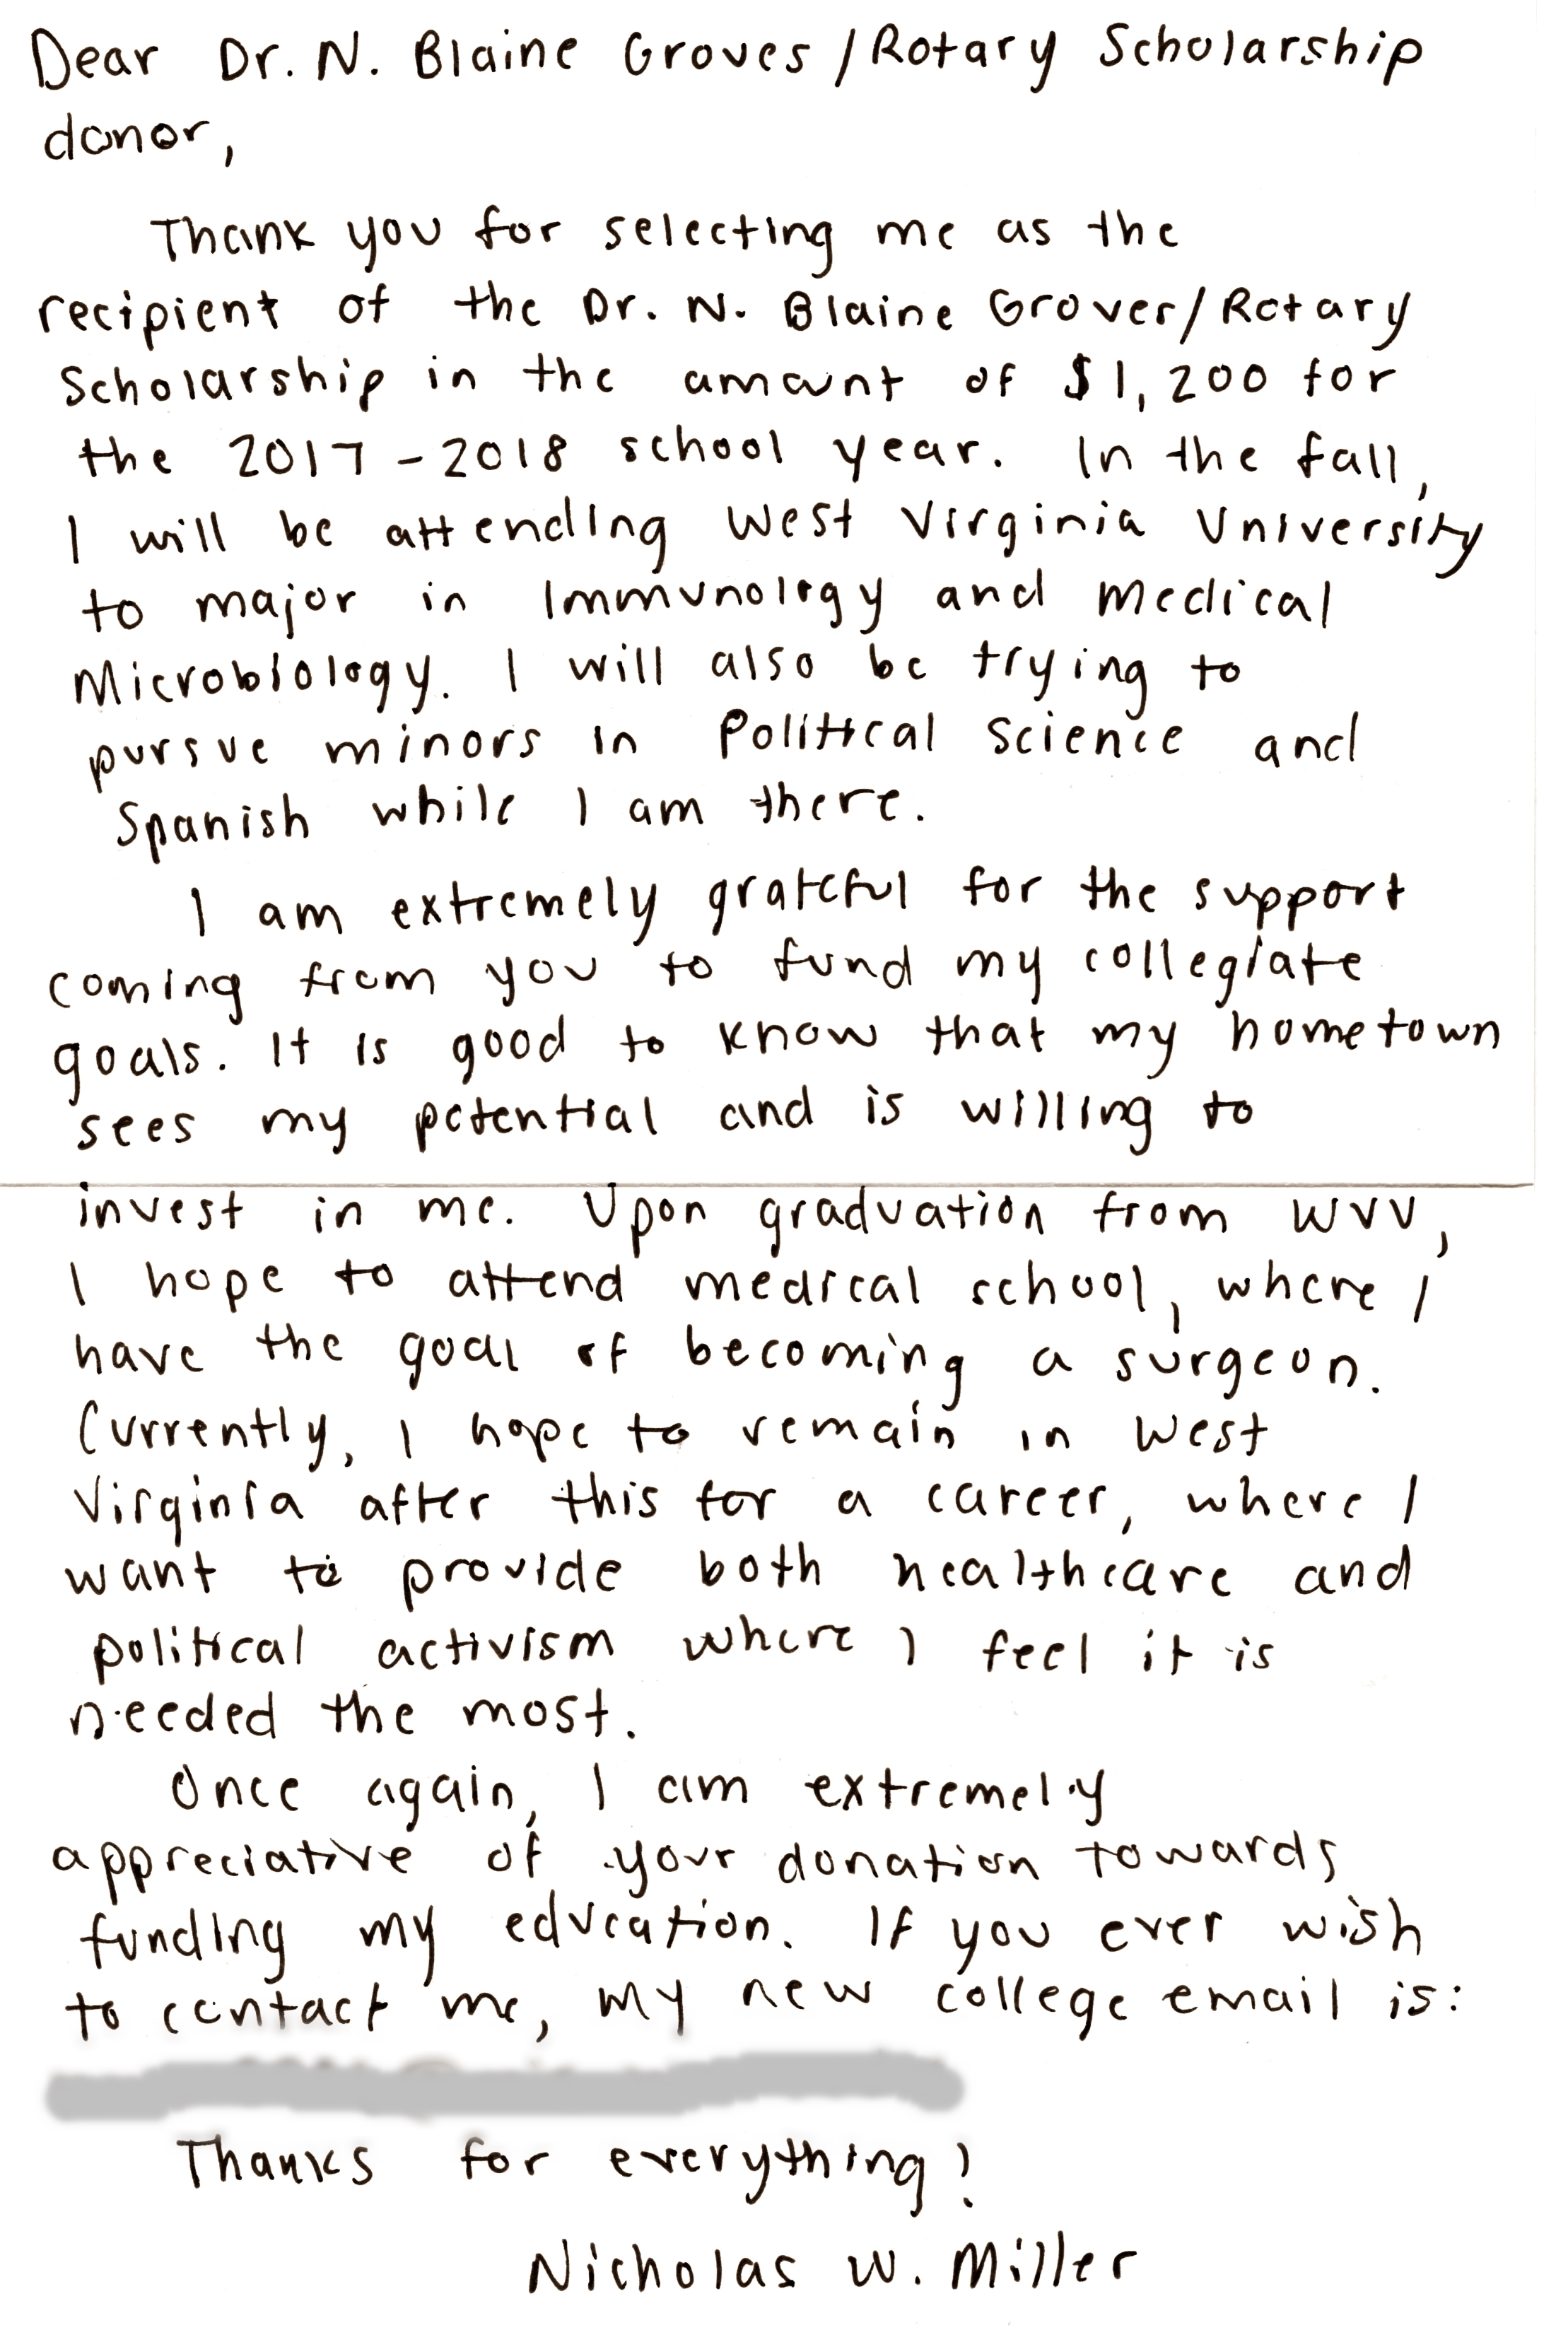 Dear Dr. N. Blaine Groves/Rotary Scholarship
donor,
Thank you for selecting me as the
recipient of the Dr. N. Blaine Grover/Rotary
Scholarship in the amount of $1,200 for
the 2017-2018 school year. In the fall,
I will be attending West Virginia University
to major in Immunology and Medical
Microbiology. I will also be trying to
pursue minors in Political Science and
Spanish while I am there.
I am extremely grateful for the support
coming from you to fund my collegiate
goals. It is good to know that my hometown
sees my potential and is willing to
invest in me. Upon graduation from WVU,
I hope to attend medical school, where I
have the goal of becoming a surgeon.
Currently, I hope to remain in West
Virginia after this for a career, where I
want to provide both healthcare and
political activism where I feel it is
needed the most.
Once again, I am extremely
appreciative of your donation towards
funding my education. If you ever wish
to contact me, my new college email is:
Thanks for everything!
Nicholas W. Miller